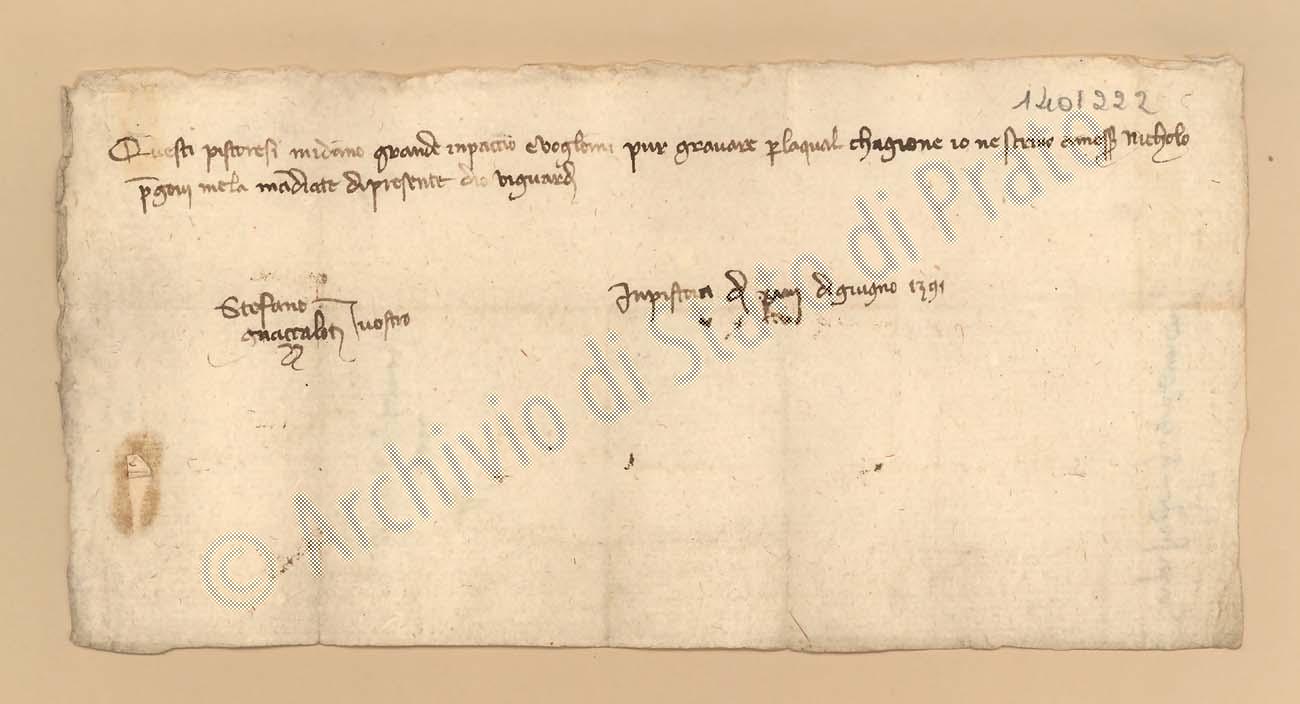 1401222
Questi pistoresi midano grande inpaccio evoglomi pur gravare p laqual chagione io ne scrivo amess Nicholo
pgovi mela mandiate dipresente dio viguardi
Stefano
guaccaloti vostro
Inpistoia dì di giugno 1391
© Archivio di Stato di Prato